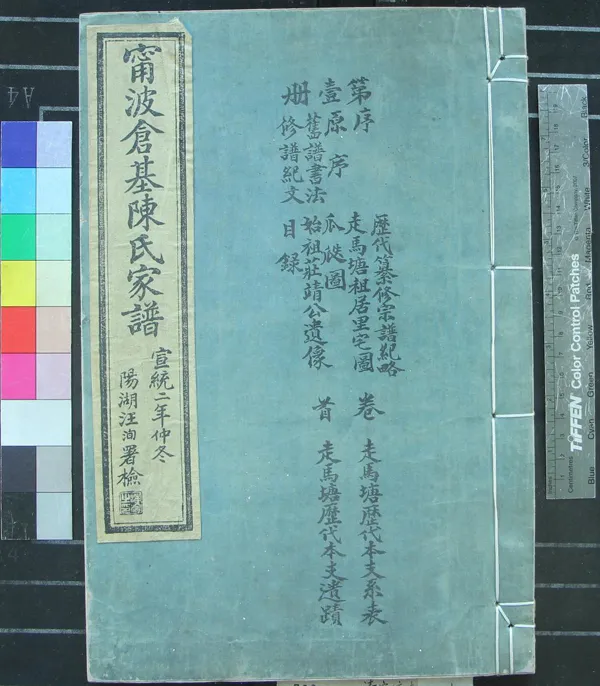 第壹册
序
原序
舊譜書法
修譜紀文
目録
歷代纂修宗譜紀略
走馬塘祖居里宅圖
瓜瓞圖
始祖莊靖公遺像
卷首
走馬塘歷代本支系表
走馬塘歷代本支遺蹟
甯波倉基陳氏家譜
宣統二年仲冬
陽湖汪洵署檢
TIFFEN Color Control Patches
Blue
Cyan
Green
Yellow
Red
Magenta
White
3/Color
Black
A4